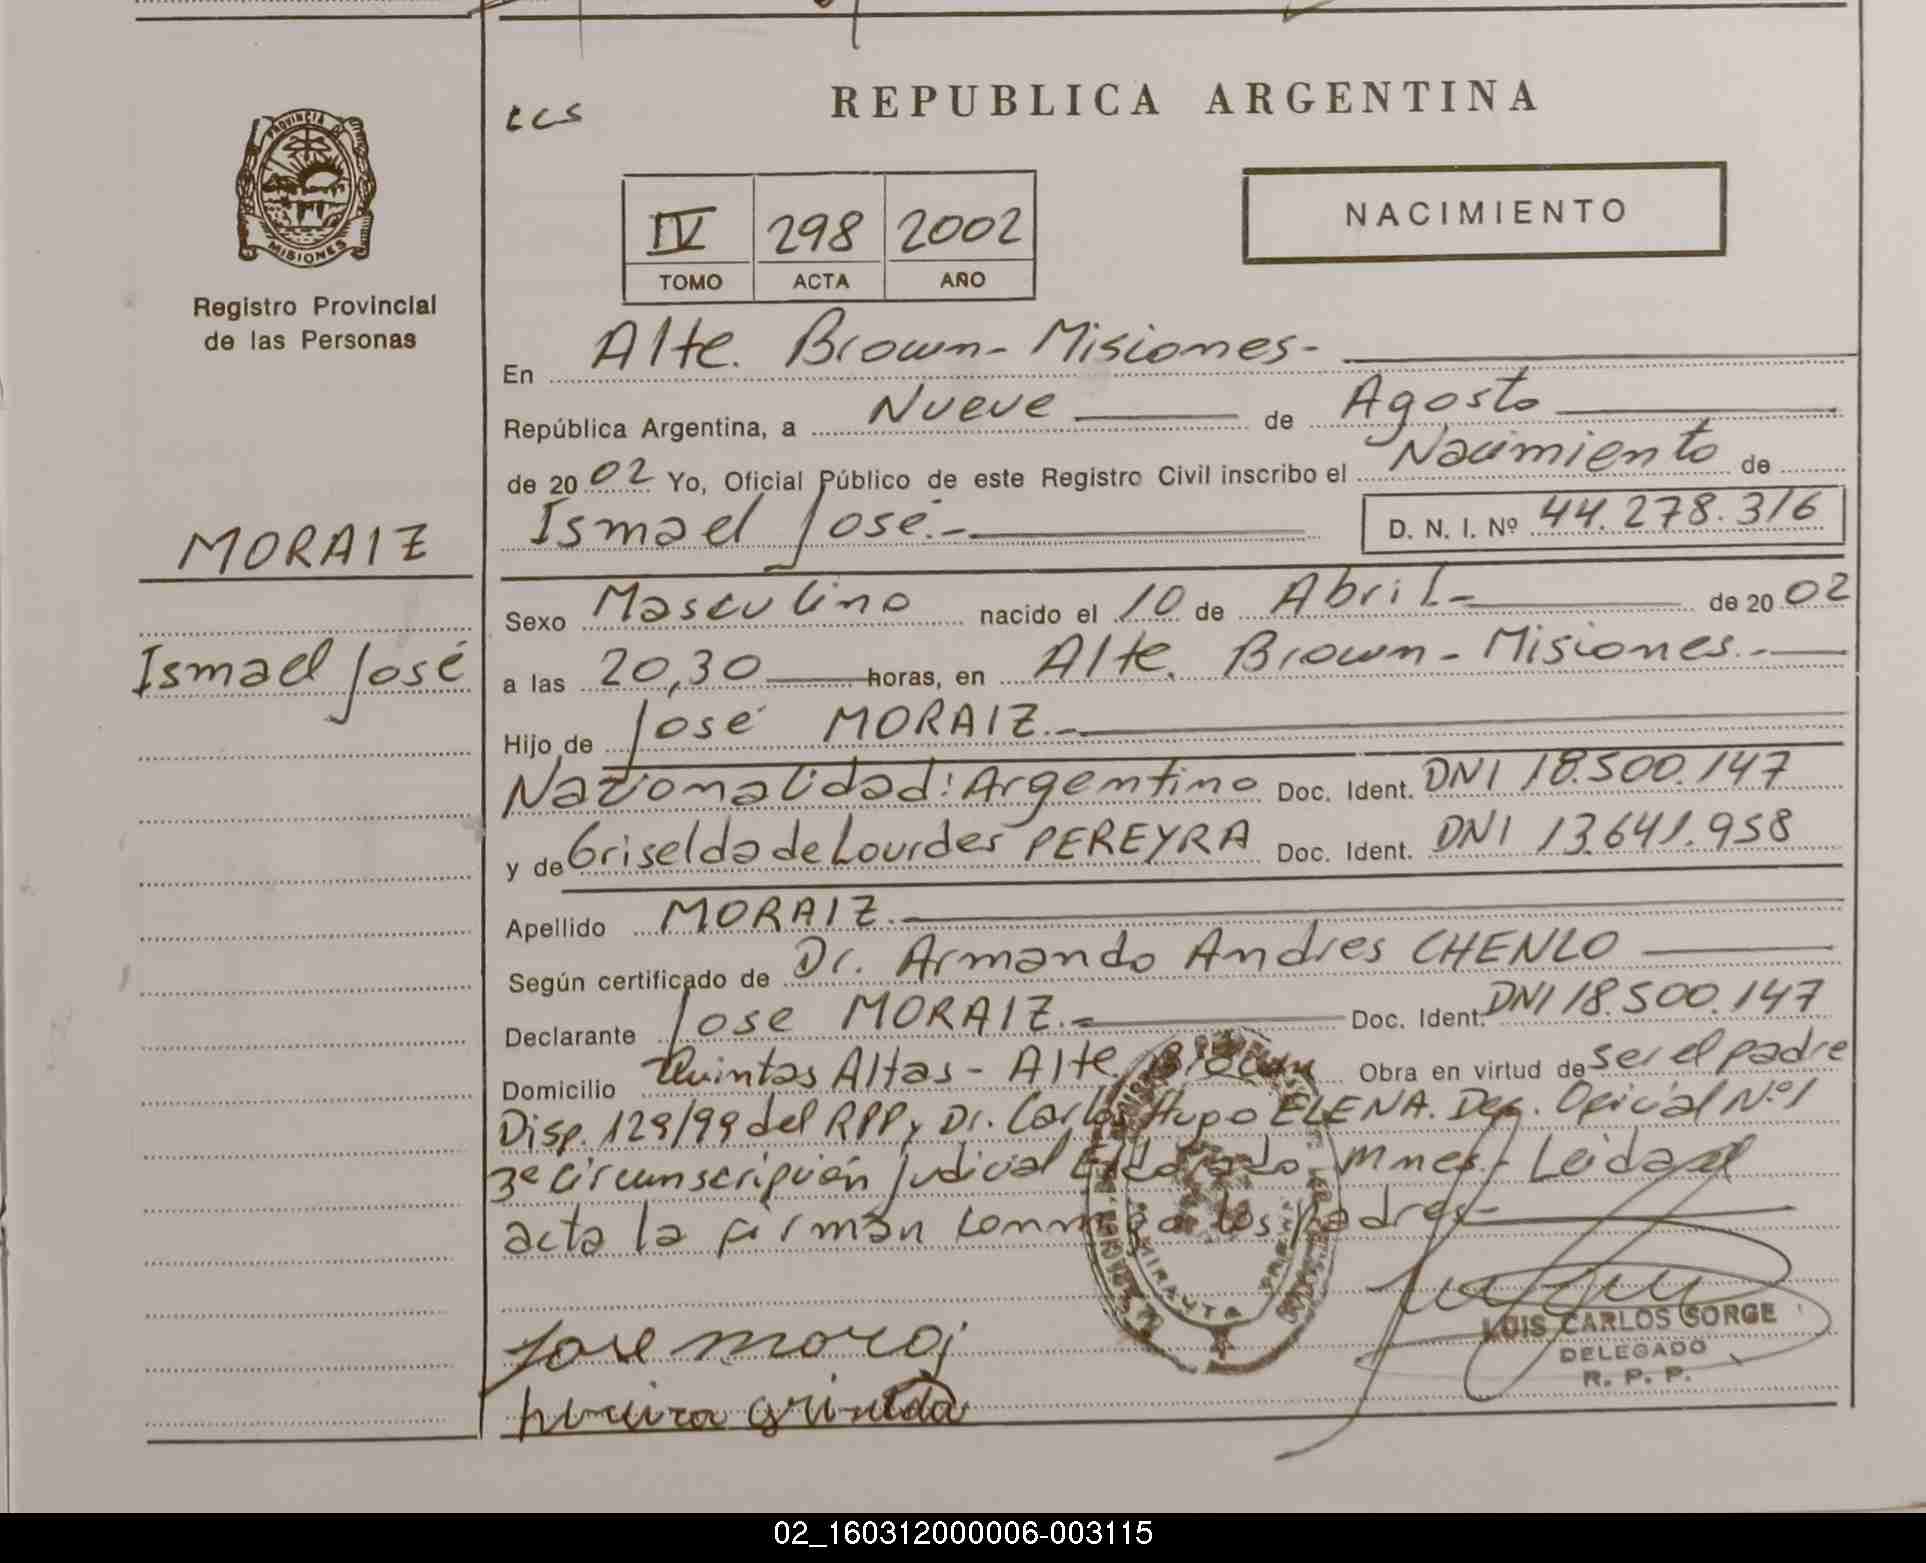 REPUBLICA ARGENTINA
ccs
PROVINCIA DE
MISIONES
Registro Provincial
de las Personas
IV 298 2002
TOMO ACTA AÑO
NACIMIENTO
En Alte. Brown - Misiones -
República Argentina, a Nueve de Agosto
de 2002 Yo, Oficial Público de este Registro Civil inscribo el Nacimiento de
Ismael José.- D. N. I. Nº 44.278.316
MORAIZ
Ismael José
Sexo Masculino nacido el 10 de Abril - de 2002
a las 20,30 horas, en Alte. Brown - Misiones.-
Hijo de José MORAIZ.-
Nacionalidad: Argentino Doc. Ident. DNI 18.500.147
y de Griselda de Lourdes PEREYRA Doc. Ident. DNI 13.641.958
Apellido MORAIZ.-
Según certificado de Dr. Armando Andres CHENLO
Declarante Jose MORAIZ.- Doc. Ident. DNI 18.500.147
Domicilio Quintas Altas - Alte. Brown Obra en virtud de ser el padre
Disp. 129/99 del RPP y Dr. Carlos Hugo ELENA. Def. Oficial Nº1
3ª Circunscripción Judicial Eldorado - Mnes.- Leida el
acta la firman conmigo los padres -
Jose moroi
LUIS CARLOS SORGE
DELEGADO
R. P. P.
02_160312000006-003115